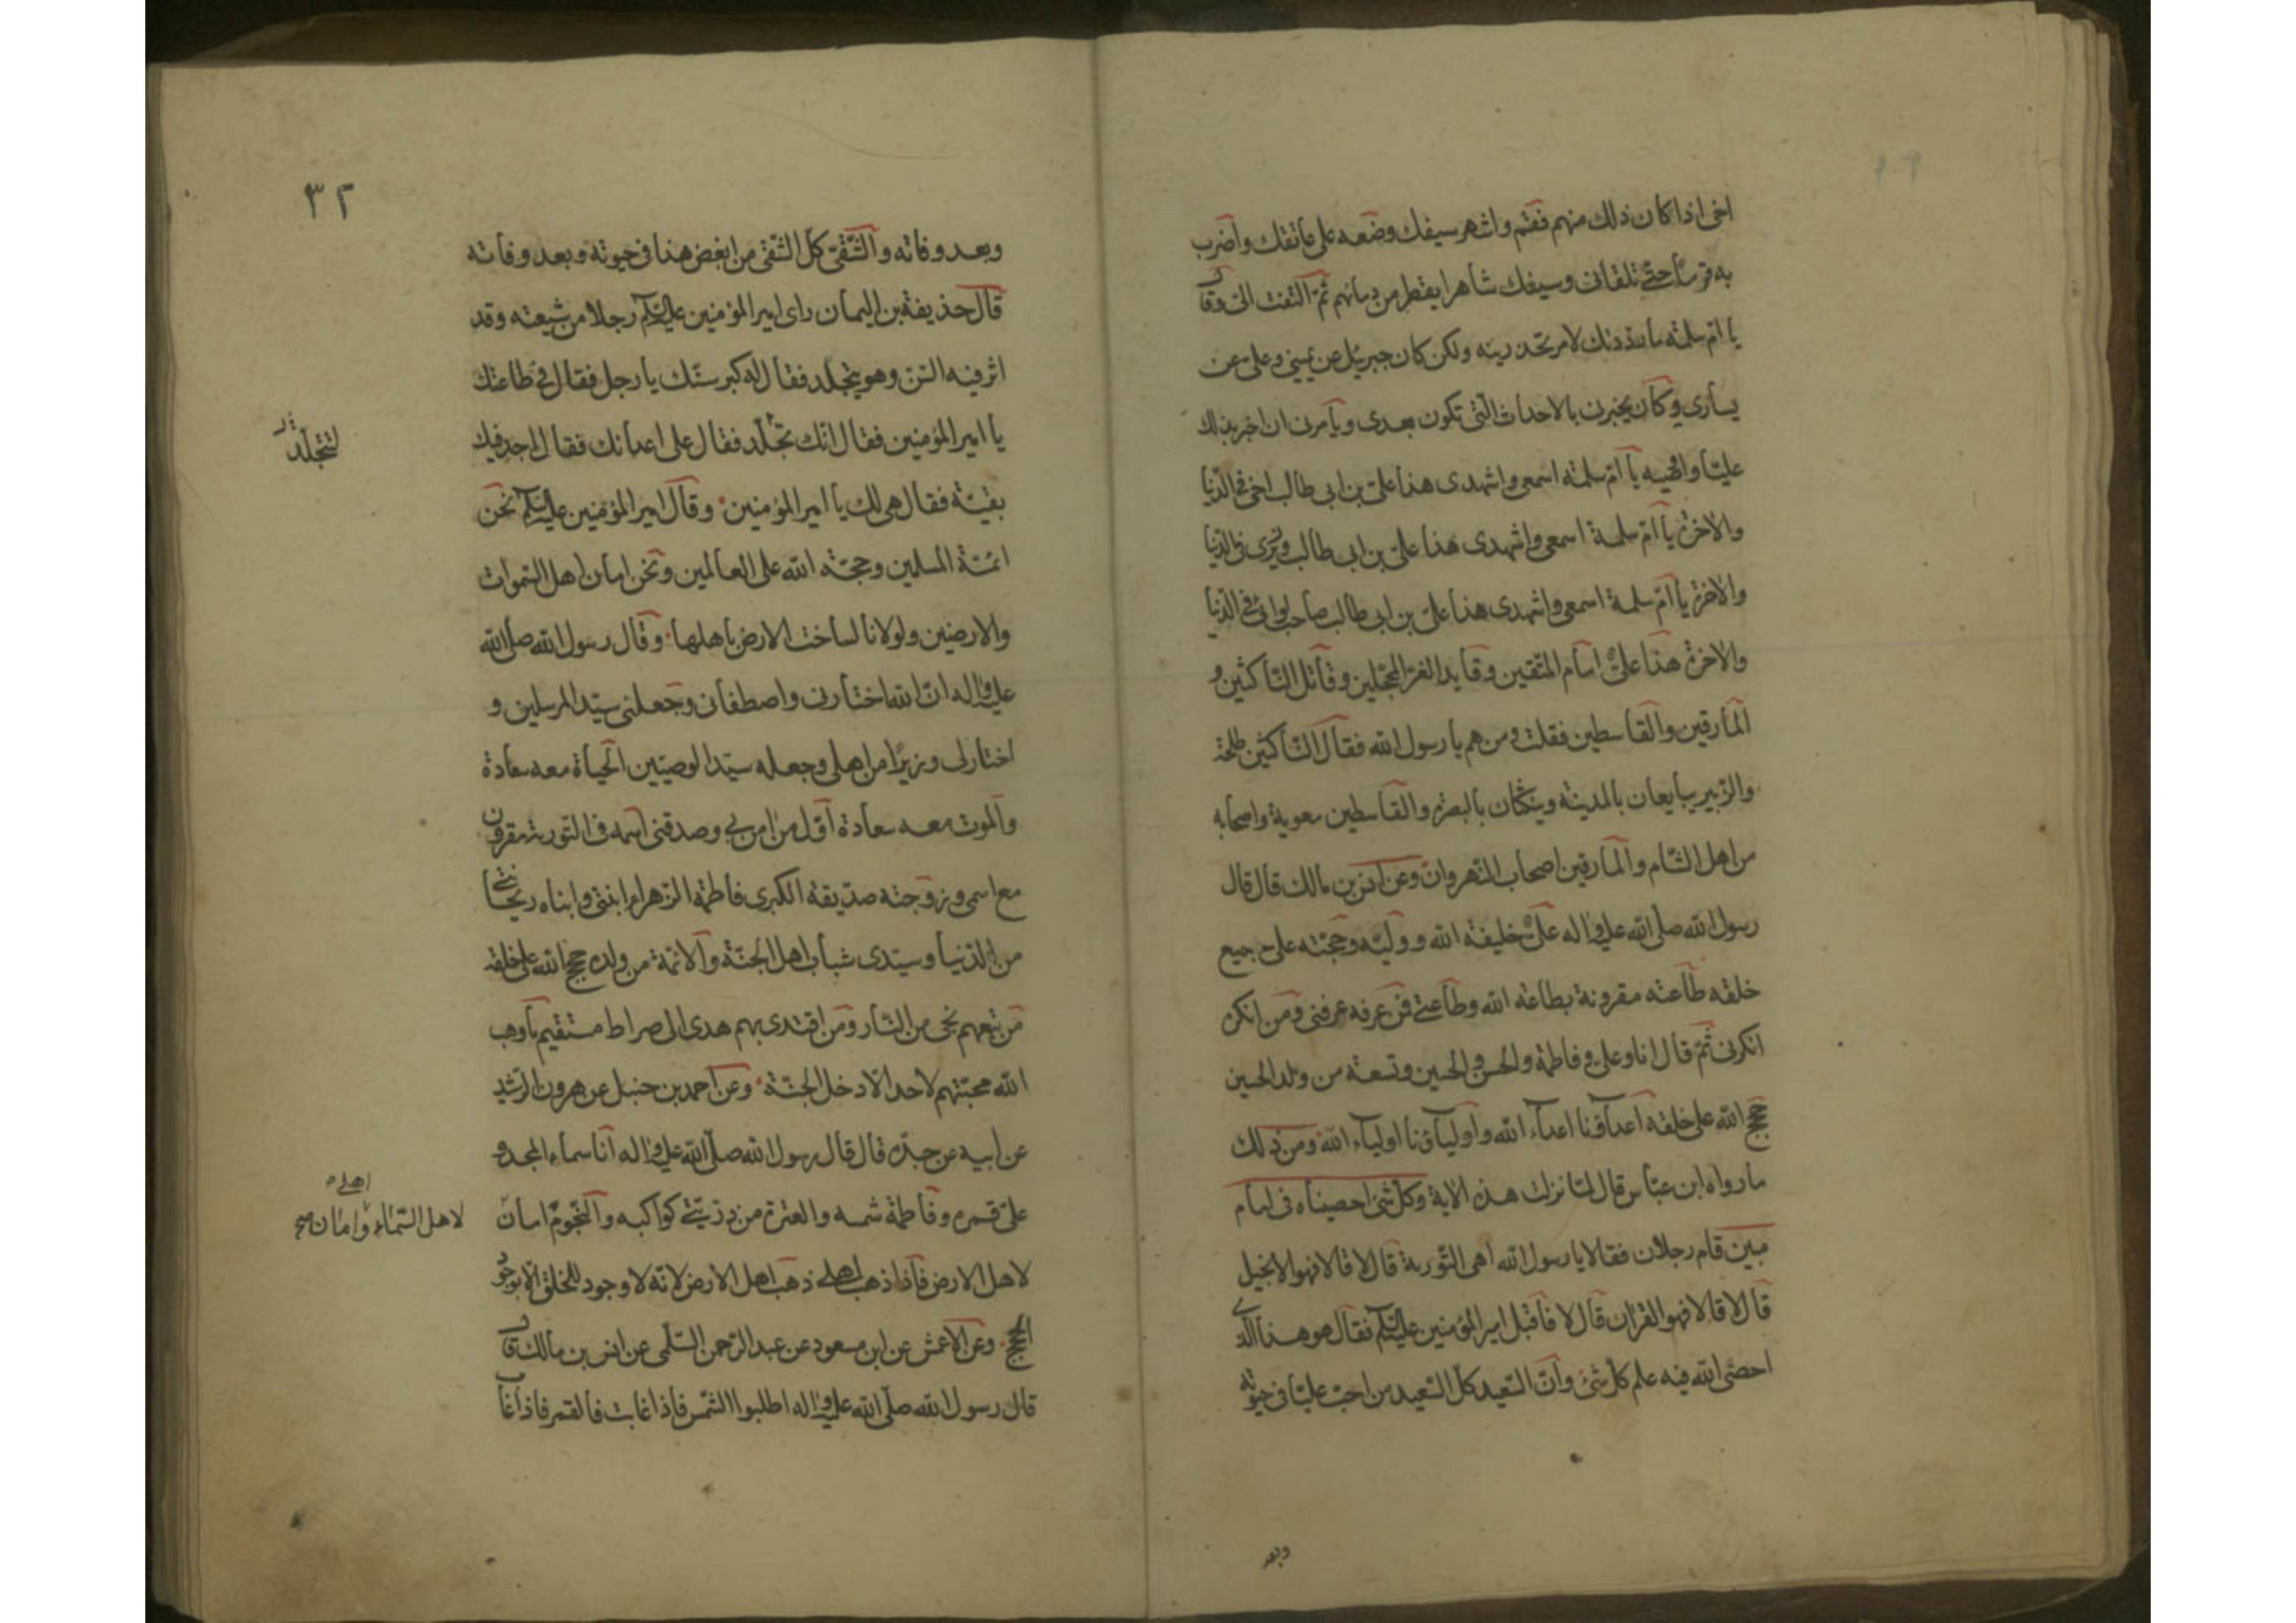 اخی اذا كان ذلك منهم فقم واشهر سيفك وضعه على عاتقك واضرب
به قدما حتى تلقانی وسيفك شاهرا يقطر من دمائهم ثم التفت الیّ وقال
يا امّ سلمة ما رددتك لامر تحدرينه ولكن كان جبرئيل عن يمينی وعلی عن
يساری وكان يخبرنی بالاحداث التی تكون بعدی ويأمرنی ان اخبر بذلك
عليّا واوصيه يا امّ سلمة اسمعی واشهدی هذا علیّ بن ابی طالب اخی فی الدّنيا
والاخرة يا امّ سلمة اسمعی واشهدی هذا علیّ بن ابی طالب وزيری فی الدّنيا
والاخرة يا امّ سلمة اسمعی واشهدی هذا علیّ بن ابی طالب صاحب لوائی فی الدّنيا
والاخرة هذا علیّ امام المتّقين وقايد الغرّ المحجّلين وقاتل النّاكثين و
المارقين والقاسطين فقلت ومن هم يا رسول الله فقال النّاكثين طلحة
والزّبير يبايعان بالمدينة وينكثان بالبصرة والقاسطين معوية واصحابه
من اهل الشّام والمارقين اصحاب النّهروان وعن انس بن مالك قال قال
رسول الله صلّى الله عليه واله علیّ خليفة الله ووليّه وحجّته على جميع
خلقه طاعته مقرونة بطاعة الله وطاعتی فمن عرفه عرفنی ومن انكره
انكرنی ثمّ قال انا وعلی وفاطمة والحسن والحسين وتسعة من ولد الحسين
حجج الله على خلقه اعداؤنا اعداء الله واولياؤنا اولياء الله ومن ذلك
ما رواه ابن عبّاس قال لمّا نزلت هذه الاية وكلّ شئ احصيناه فی امام
مبين قام رجلان فقالا يا رسول الله اهی التّورية قال لا قالا فهو الانجيل
قال لا قالا فهو القران قال لا فاقبل امير المؤمنين عليه السّلم فقال هو هذا الّذی
احصى الله فيه علم كلّ شئ وانّ السّعيد كلّ السّعيد من احبّ عليّا فی حيوته
وبعد
٣٢
وبعد وفاته والشّقیّ كلّ الشّقی من ابغض هذا فی حيوته وبعد وفاته
قال حذيفة بن اليمان رای امير المؤمنين عليه السّلم رجلا من شيعته وقد
اثر فيه السّن وهو يتجلّد فقال له كبر سنّك يا رجل فقال فی طاعتك
يا امير المؤمنين فقال انّك تتجلّد فقال على اعدائك فقال اجد فيك
لتتجلّد
بقيّة فقال هی لك يا امير المؤمنين وقال امير المؤمنين عليه السّلم نحن
ائمّة المسلمين وحجّة الله على العالمين ونحن امان اهل السّموات
والارضين ولولانا لساخت الارض باهلها وقال رسول الله صلّى الله
عليه واله انّ الله اختارنی واصطفانی وجعلنی سيّد المرسلين و
اختار لی وزيرًا من اهلی وجعله سيّد الوصيّين الحياة معه سعادة
والموت معه سعادة اوّل من امن بی وصدقنی اسمه فی التورية مقرون
مع اسمی وزوجته صدّيقة الكبرى فاطمة الزّهراء ابنتی وابناه ريحانتی
من الدّنيا وسيّدی شباب اهل الجنّة والائمّة من ولده حجج الله على خلقه
من تبعهم نجی من النّار ومن اقتدی بهم هدی الى صراط مستقيم ما وهب
الله محبّتهم لاحد الّا دخل الجنّة وعن احمد بن حنبل عن هرون الرّشيد
عن ابيه عن جدّه قال قال رسول الله صلّى الله عليه واله انا سماء المجد و
علیّ قمره وفاطمة شمسه والعترة من ذرّيّتی كواكبه والنّجوم امان
اهلی
لاهل السّماء وامان صح
لاهل الارض فاذا ذهب اهلی ذهب اهل الارض لانّه لا وجود للخلق الّا بوجود
الحجج وعن الاعمش عن ابن مسعود عن عبد الرّحمن السّلمی عن انس بن مالك قال
قال رسول الله صلّى الله عليه واله اطلبوا الشّمس فاذا غابت فالقمر فاذا غاب